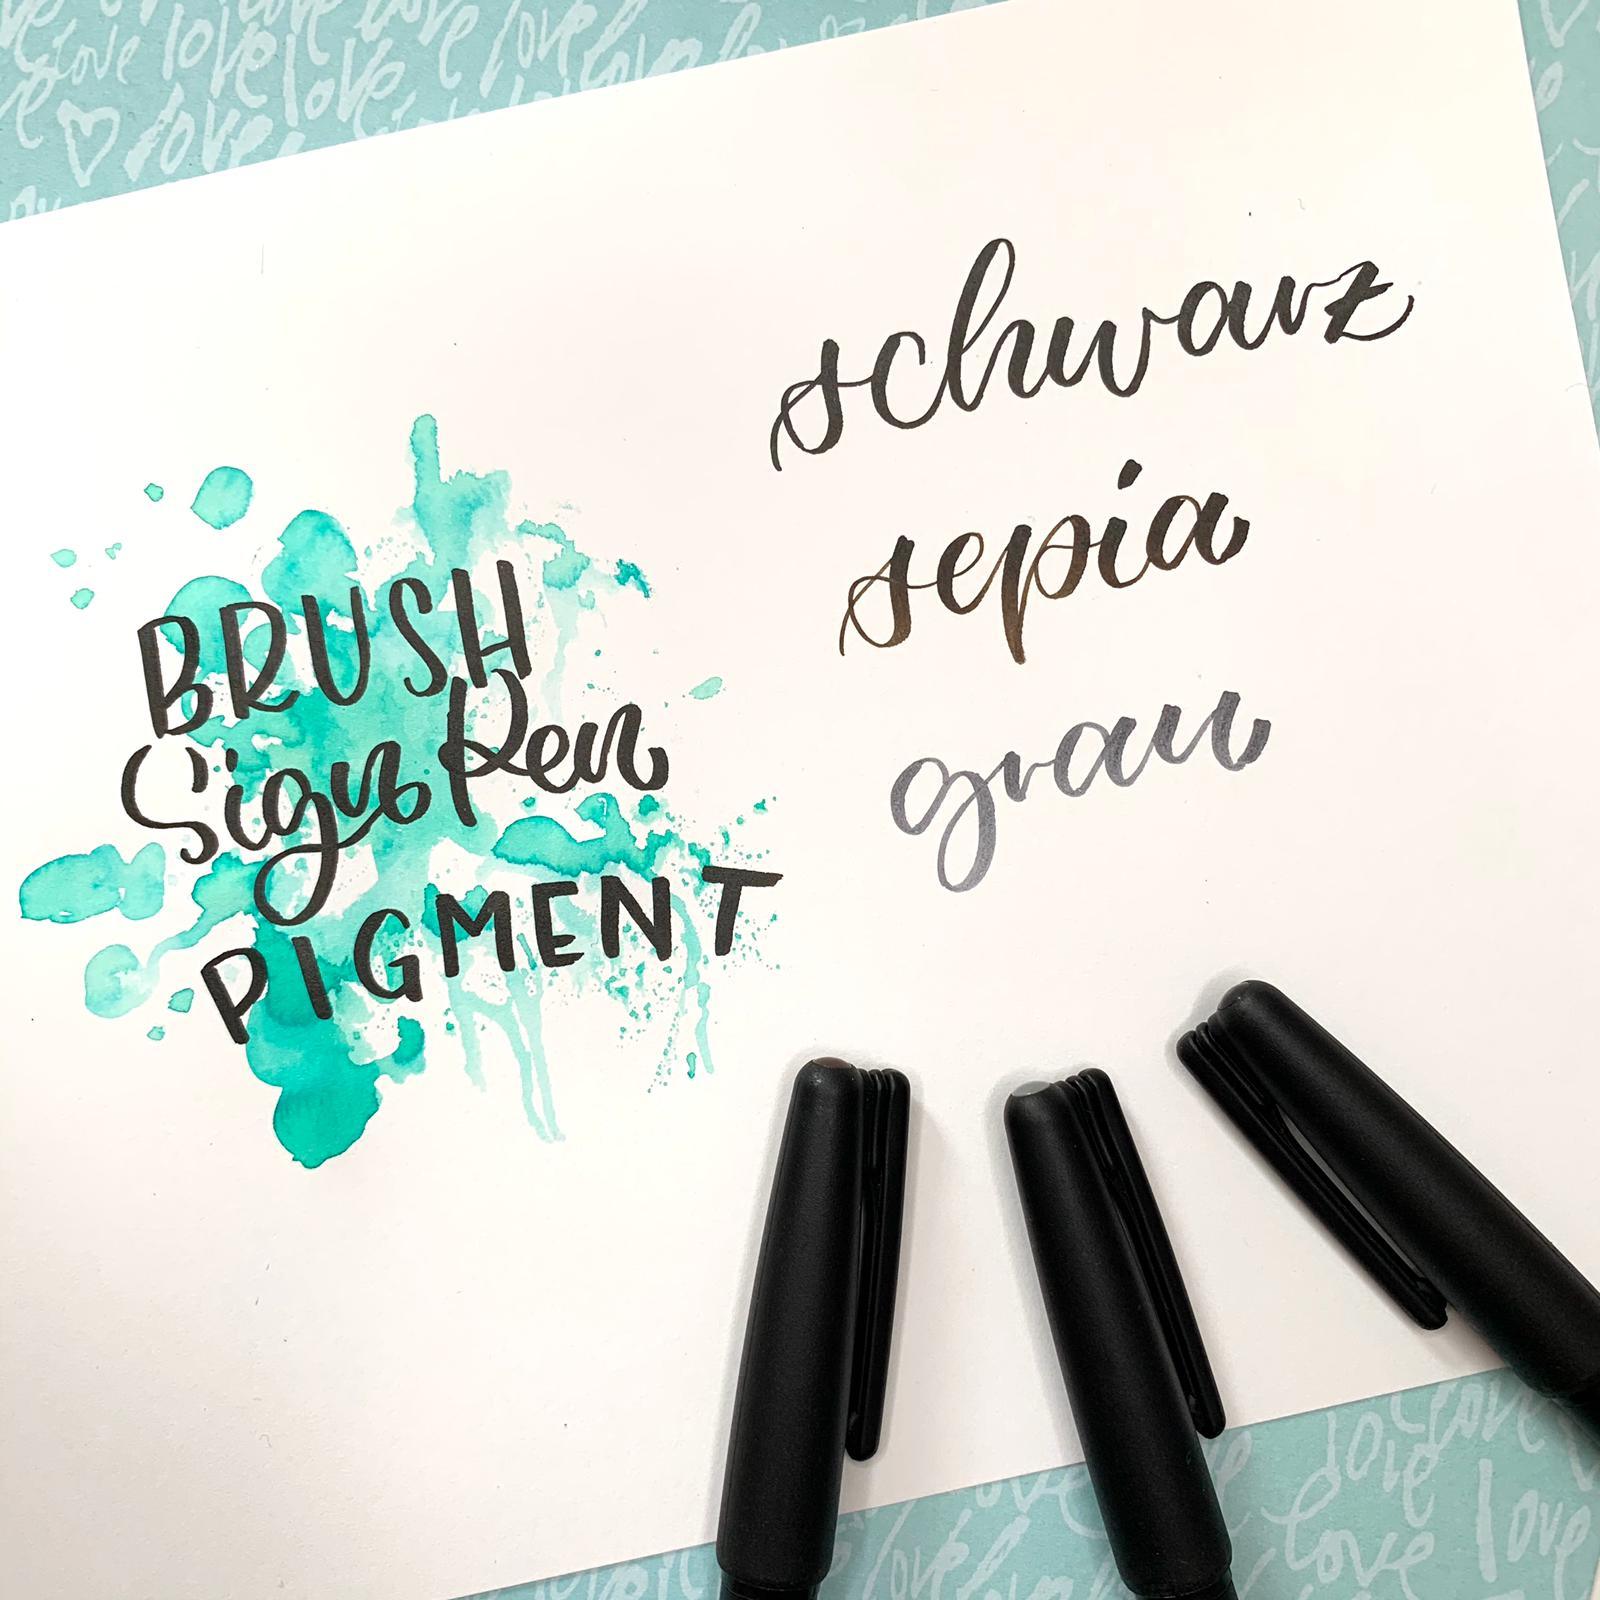 BRUSH
Sign Pen
PIGMENT
schwarz
sepia
grau